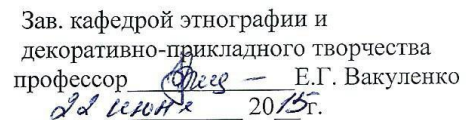 Зав. кафедрой этнографии и
декоративно-прикладного творчества
профессор Е.Г. Вакуленко
22 июня 2015г.